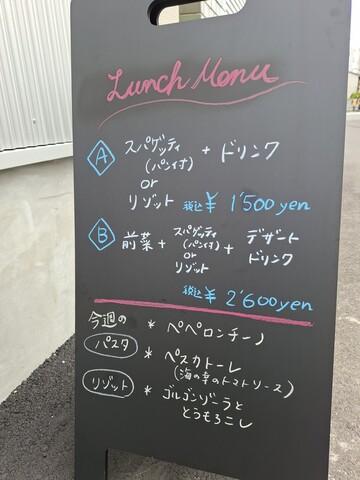 Lunch Menu
A スパゲッティ + ドリンク
(パン付)
or
リゾット 税込 ¥ 1'500 yen
B 前菜 + スパゲッティ + デザート
(パン付) ドリンク
or
リゾット
税込 ¥ 2'600 yen
今週の * ペペロンチーノ
パスタ * ペスカトーレ
(海の幸のトマトソース)
リゾット * ゴルゴンゾーラと
とうもろこし